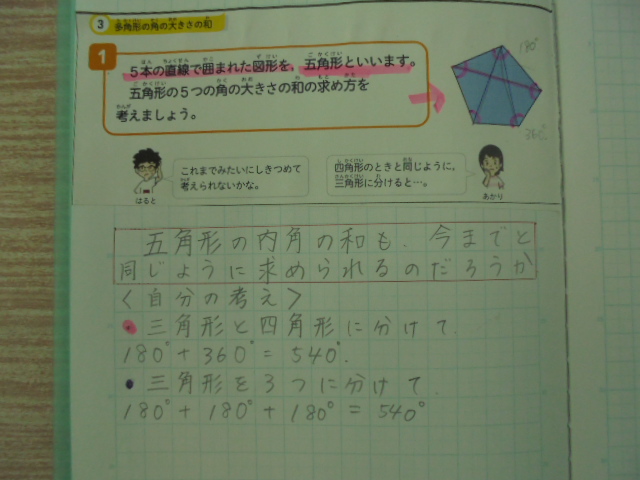 3 多角形の角の大きさの和
1
5本の直線で囲まれた図形を、五角形といいます。
五角形の5つの角の大きさの和の求め方を
考えましょう。
180°
360°
これまでみたいにしきつめて
考えられないかな。
はると
四角形のときと同じように、
三角形に分けると…。
あかり
五角形の内角の和も、今までと
同じように求められるのだろうか
<自分の考え>
• 三角形と四角形に分けて.
180°+360°=540°.
• 三角形を3つに分けて.
180°+180°+180°=540°